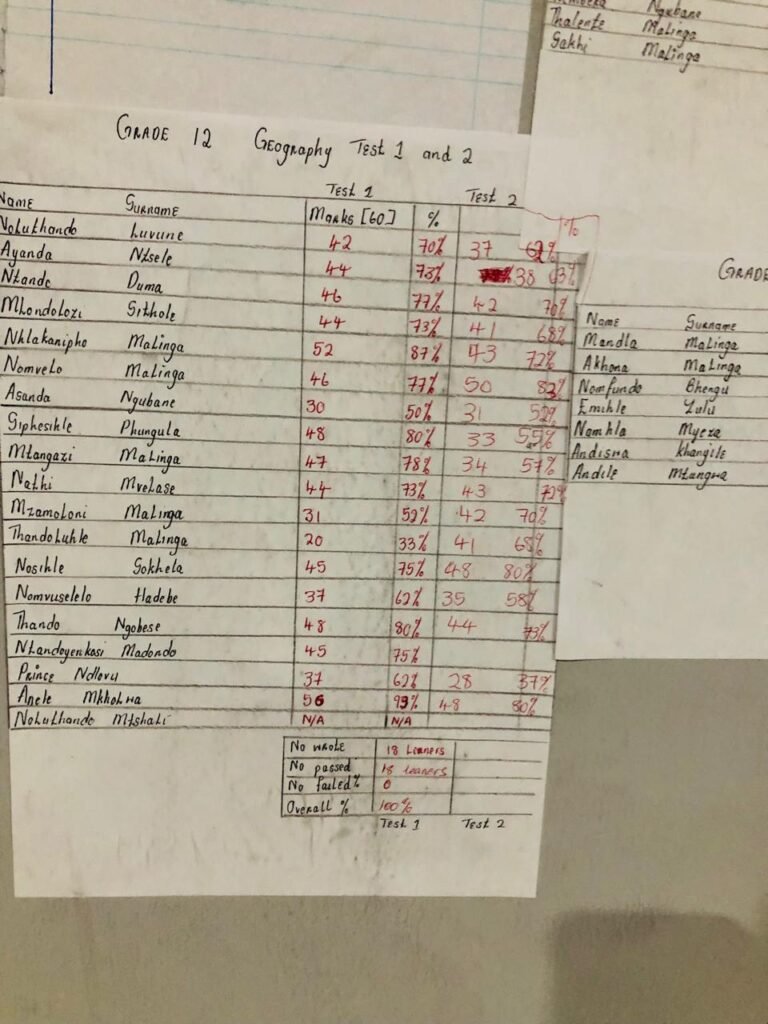 Ngubane
Thalente Malinga
Sakhi Malinga
GRADE 12 Geography Test 1 and 2
Test 1 Test 2
Name Surname Marks [60] % %
Nokuthando Luvune 42 70% 37 62%
Ayanda Ntsele 44 73% 38 63%
Ntando Duma 46 77% 42 70%
Mlondolozi Sithole 44 73% 41 68%
Nhlakanipho Malinga 52 87% 43 72%
Nomvelo Malinga 46 77% 50 83%
Asanda Ngubane 30 50% 31 52%
Siphesihle Phungula 48 80% 33 55%
Mtangazi Malinga 47 78% 34 57%
Nathi Mvelase 44 73% 43 72%
Mzamoloni Malinga 31 52% 42 70%
Thandoluhle Malinga 20 33% 41 68%
Nosihle Sokhela 45 75% 48 80%
Nomvuselelo Hadebe 37 62% 35 58%
Thando Ngobese 48 80% 44 73%
Ntandoyenkosi Madondo 45 75%
Prince Ndlovu 37 62% 28 37%
Anele Mkhokwa 56 93% 48 80%
Nokuthando Mtshali N/A N/A
No wrote 18 Learners
No passed 18 learners
No failed% 0
Overall % 100%
Test 1 Test 2
GRADE
Name Surname
Mandla Malinga
Akhona Malinga
Nomfundo Bhengu
Emihle Zulu
Nomhla Myeza
Andiswa Khangile
Andile Mtangwa